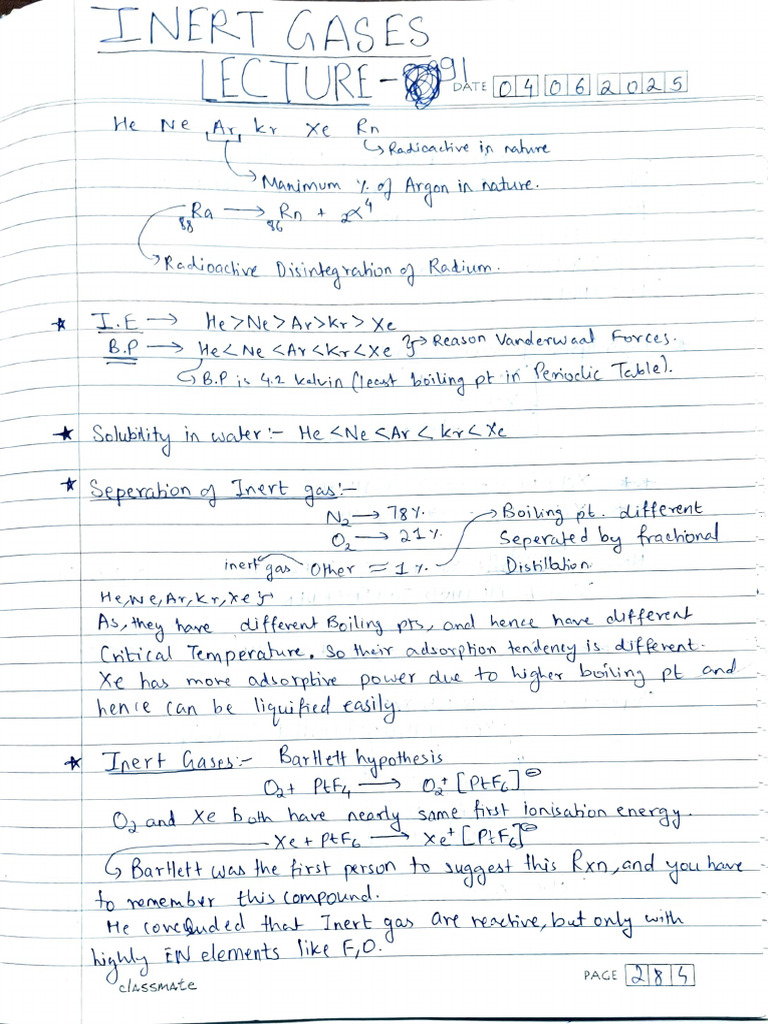 INERT GASES
LECTURE - 91 DATE 04062025
He Ne Ar, Kr Xe Rn
↳ Radioactive in nature
→ Manimum % of Argon in nature.
₈₈Ra → ₈₆Rn + ₂α⁴
→ Radioactive Disintegration of Radium.
* I.E → He>Ne>Ar>Kr>Xe
B.P → He<Ne<Ar<Kr<Xe }→ Reason Vanderwaal Forces.
↳ B.P is 4.2 kelvin (least boiling pt in Periodic Table).
* Solubility in water:- He<Ne<Ar<Kr<Xe
* Seperation of Inert gas:-
N₂ → 78%
O₂ → 21%
inert gas Other = 1%
→ Boiling pt. different
Seperated by frachional
Distillation
He, Ne, Ar, Kr, Xe }
As, they have different Boiling pts, and hence have different
Critical Temperature. So their adsorption tendency is different.
Xe has more adsorptive power due to higher boiling pt and
hence can be liquified easily.
* Inert Gases:- Bartlett hypothesis
O₂ + PtF₄ → O₂⁺ [PtF₆]⊖
O₂ and Xe both have nearly same first ionisation energy.
Xe + PtF₆ → Xe⁺ [PtF₆]⊖
↳ Bartlett was the first person to suggest this Rxn, and you have
to remember this compound.
He concluded that Inert gas are reactive, but only with
highly EN elements like F, O.
classmate PAGE 284